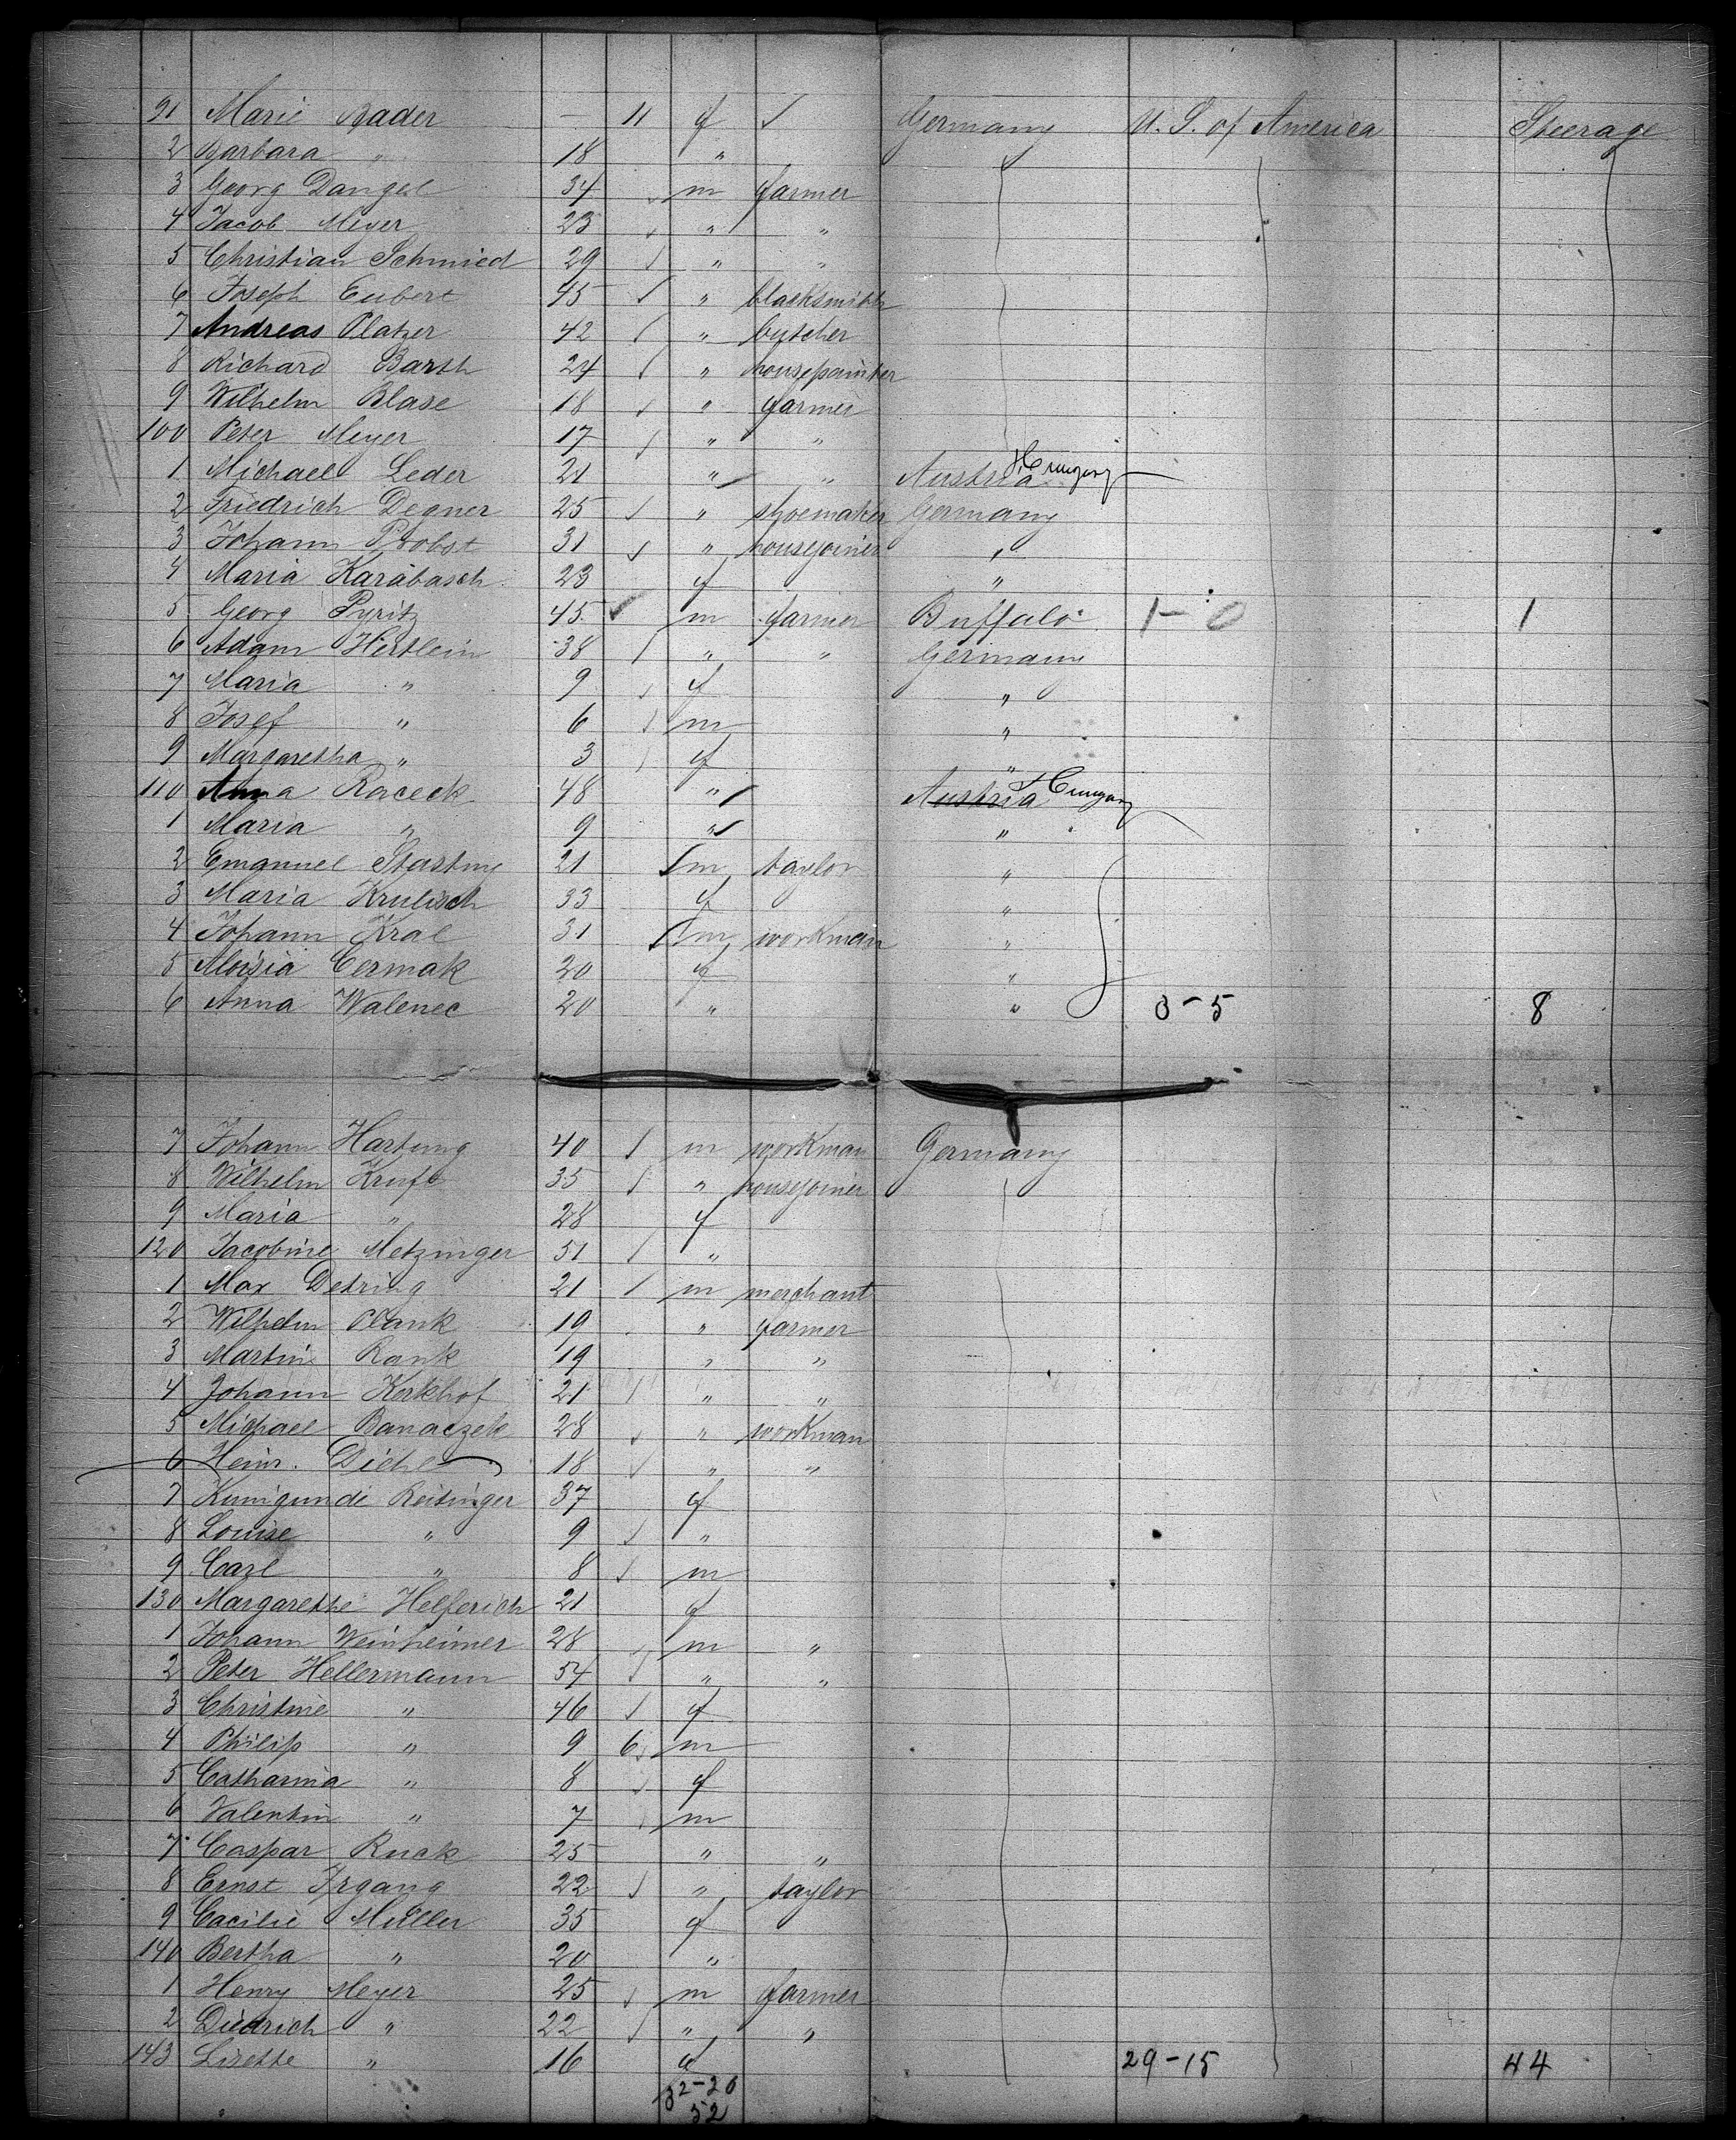 91 Marie Bader - 11 f Germany U. S. of America Steerage
2 Barbara " 18 "
3 Georg Dangel 34 m farmer
4 Jacob Meyer 23 " "
5 Christian Schmied 29 " "
6 Joseph Eubert 45 " blacksmith
7 Andreas Platzer 42 " butscher
8 Richard Barth 24 " housepainter
9 Wilhelm Blase 18 " farmer
100 Peter Meyer 17 " "
1 Michael Leder 21 " " Austria Hungary
2 Friedrich Degner 25 " shoemaker Germany
3 Johann Probst 31 " housejoiner "
4 Maria Karabasch 23 f "
5 Georg Pyritz 45 m farmer Buffalo 1-0 1
6 Adam Hertlein 38 " " Germany
7 Maria " 9 f "
8 Josef " 6 m "
9 Margaretha " 3 f "
110 Anna Raceck 48 " Austria Hungary
1 Maria " 9 " "
2 Emanuel Stastny 21 m taylor "
3 Maria Krulisch 33 f "
4 Johann Kral 31 m workman "
5 Aloisia Cermak 20 f "
6 Anna Walenec 20 " " 3-5 8
7 Johann Hartung 40 m workman Germany
8 Wilhelm Kruft 35 " housejoiner
9 Maria " 28 f
120 Jacobine Metzinger 51 "
1 Max Detring 21 m merchant
2 Wilhelm Plank 19 " farmer
3 Martin Rank 19 " "
4 Johann Kerkhof 21 " "
5 Michael Banaczek 28 " workman
6 Heinr. Diehl 18 " "
7 Kunigunde Reitinger 37 f
8 Louise " 9 "
9 Carl " 8 m
130 Margarethe Helferich 21 f
1 Johann Weinheimer 28 m "
2 Peter Hellermann 54 " "
3 Christine " 46 f
4 Philip " 9 6 m
5 Catharina " 8 f
6 Valentin " 7 m
7 Caspar Ruck 25 " "
8 Ernst Irgang 22 " taylor
9 Cacilie Müller 35 f
140 Bertha " 20 "
1 Henry Meyer 25 m farmer
2 Diedrich " 22 " "
143 Lisette " 16 f 29-15 44
32-20
52